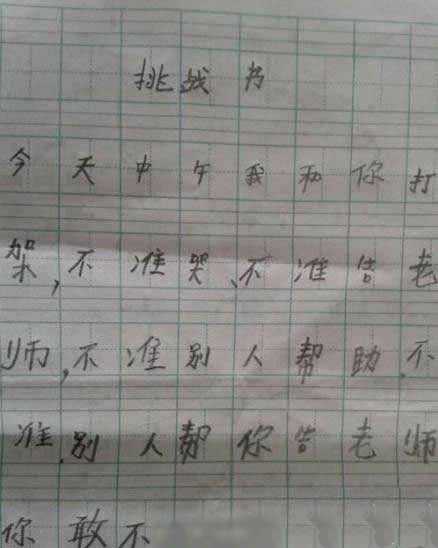 挑战书
今天中午我和你打
架,不准哭、不准告老
师,不准别人帮助,不
准,别人帮你告老师
你敢不